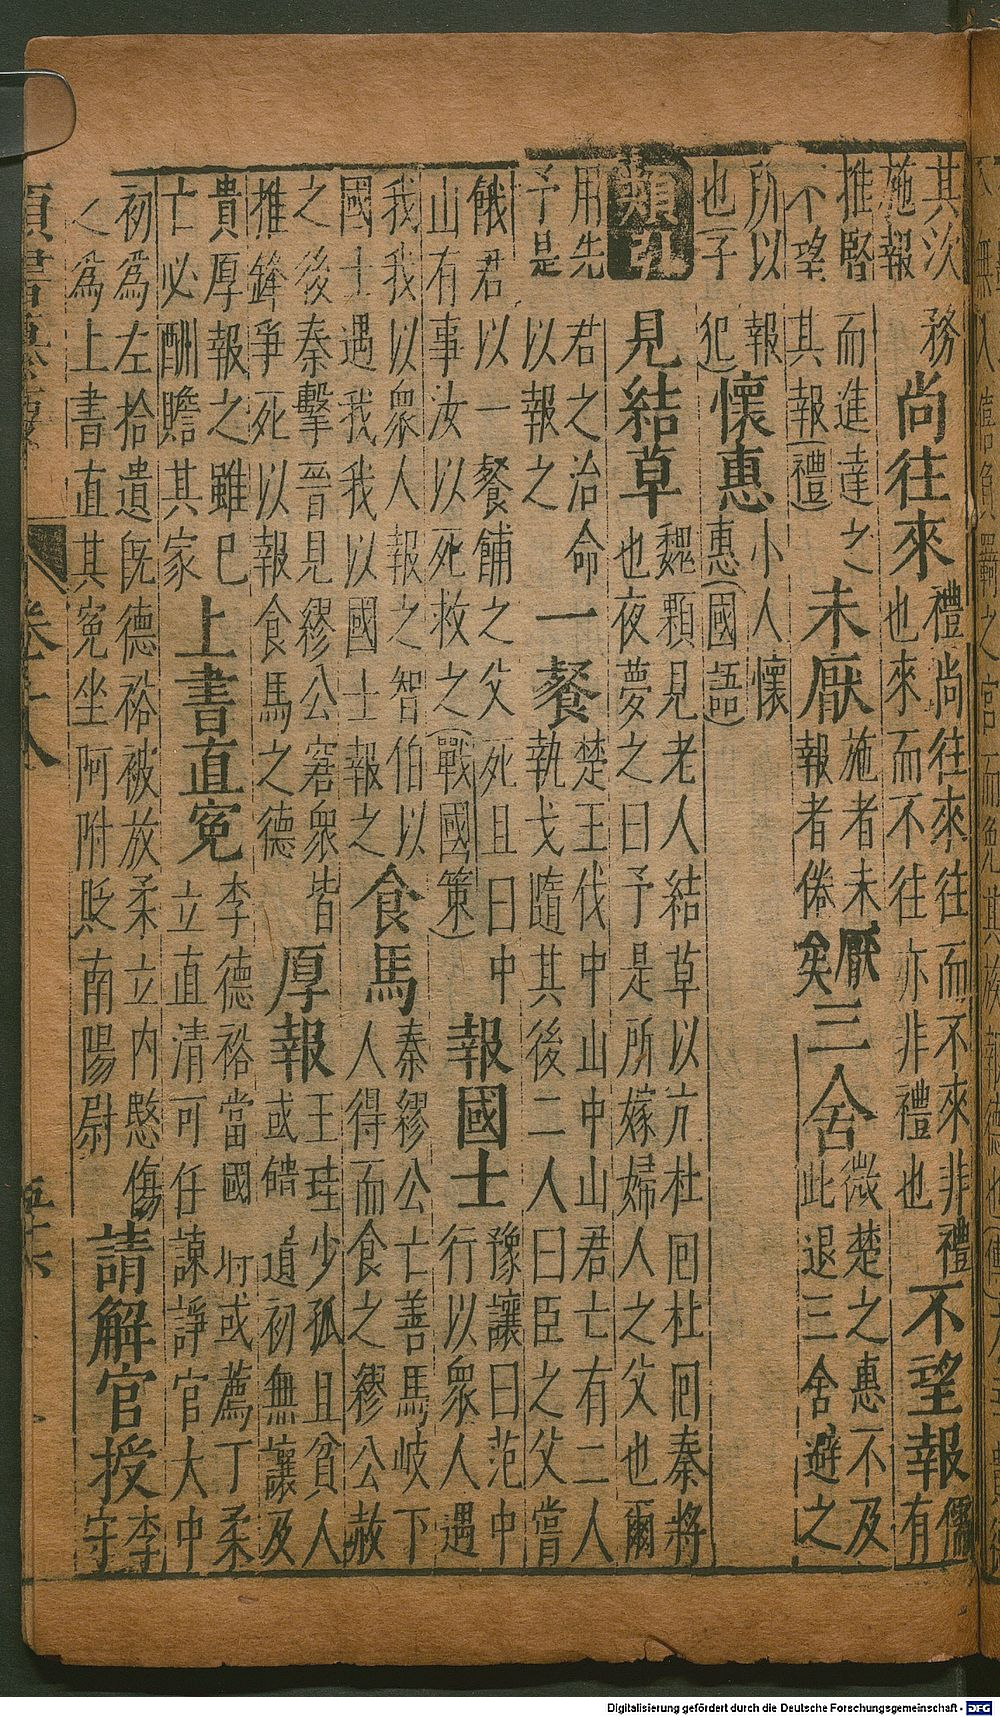 其次務
施報
尚往來
禮尚往來往而不來非禮
也來而不往亦非禮也
不望報
儒
有
推賢而進達之
不望其報(禮)
未厭
施者未厭
報者倦矣
三舍
微楚之惠不及
此退三舍避之
所以報
也(子犯)
懷惠
小人懷
惠(國語)
類
見結草
魏顆見老人結草以亢杜回杜回秦將
也夜夢之曰予是所嫁婦人之父也爾
用先君之治命
予是以報之
一餐
楚王伐中山中山君亡有二人
執戈隨其後二人曰臣之父嘗
餓君以一餐餔之父死且曰中
山有事汝以死救之(戰國策)
報國士
豫讓曰范中
行以衆人遇
我我以衆人報之智伯以
國士遇我我以國士報之
食馬
秦繆公亡善馬岐下
人得而食之繆公赦
之後秦擊晉見繆公窘衆皆
推鋒爭死以報食馬之德
厚報
王珪少孤且貧人
或餽遺初無讓及
貴厚報之雖已
亡必酬贍其家
上書直冤
李德裕當國時或薦丁柔
立直清可任諫諍官大中
初為左拾遺旣德裕被放柔立內愍傷
之為上書直其冤坐阿附貶南陽尉
請解官授
李
守
卷十八
Digitalisierung gefördert durch die Deutsche Forschungsgemeinschaft - DFG